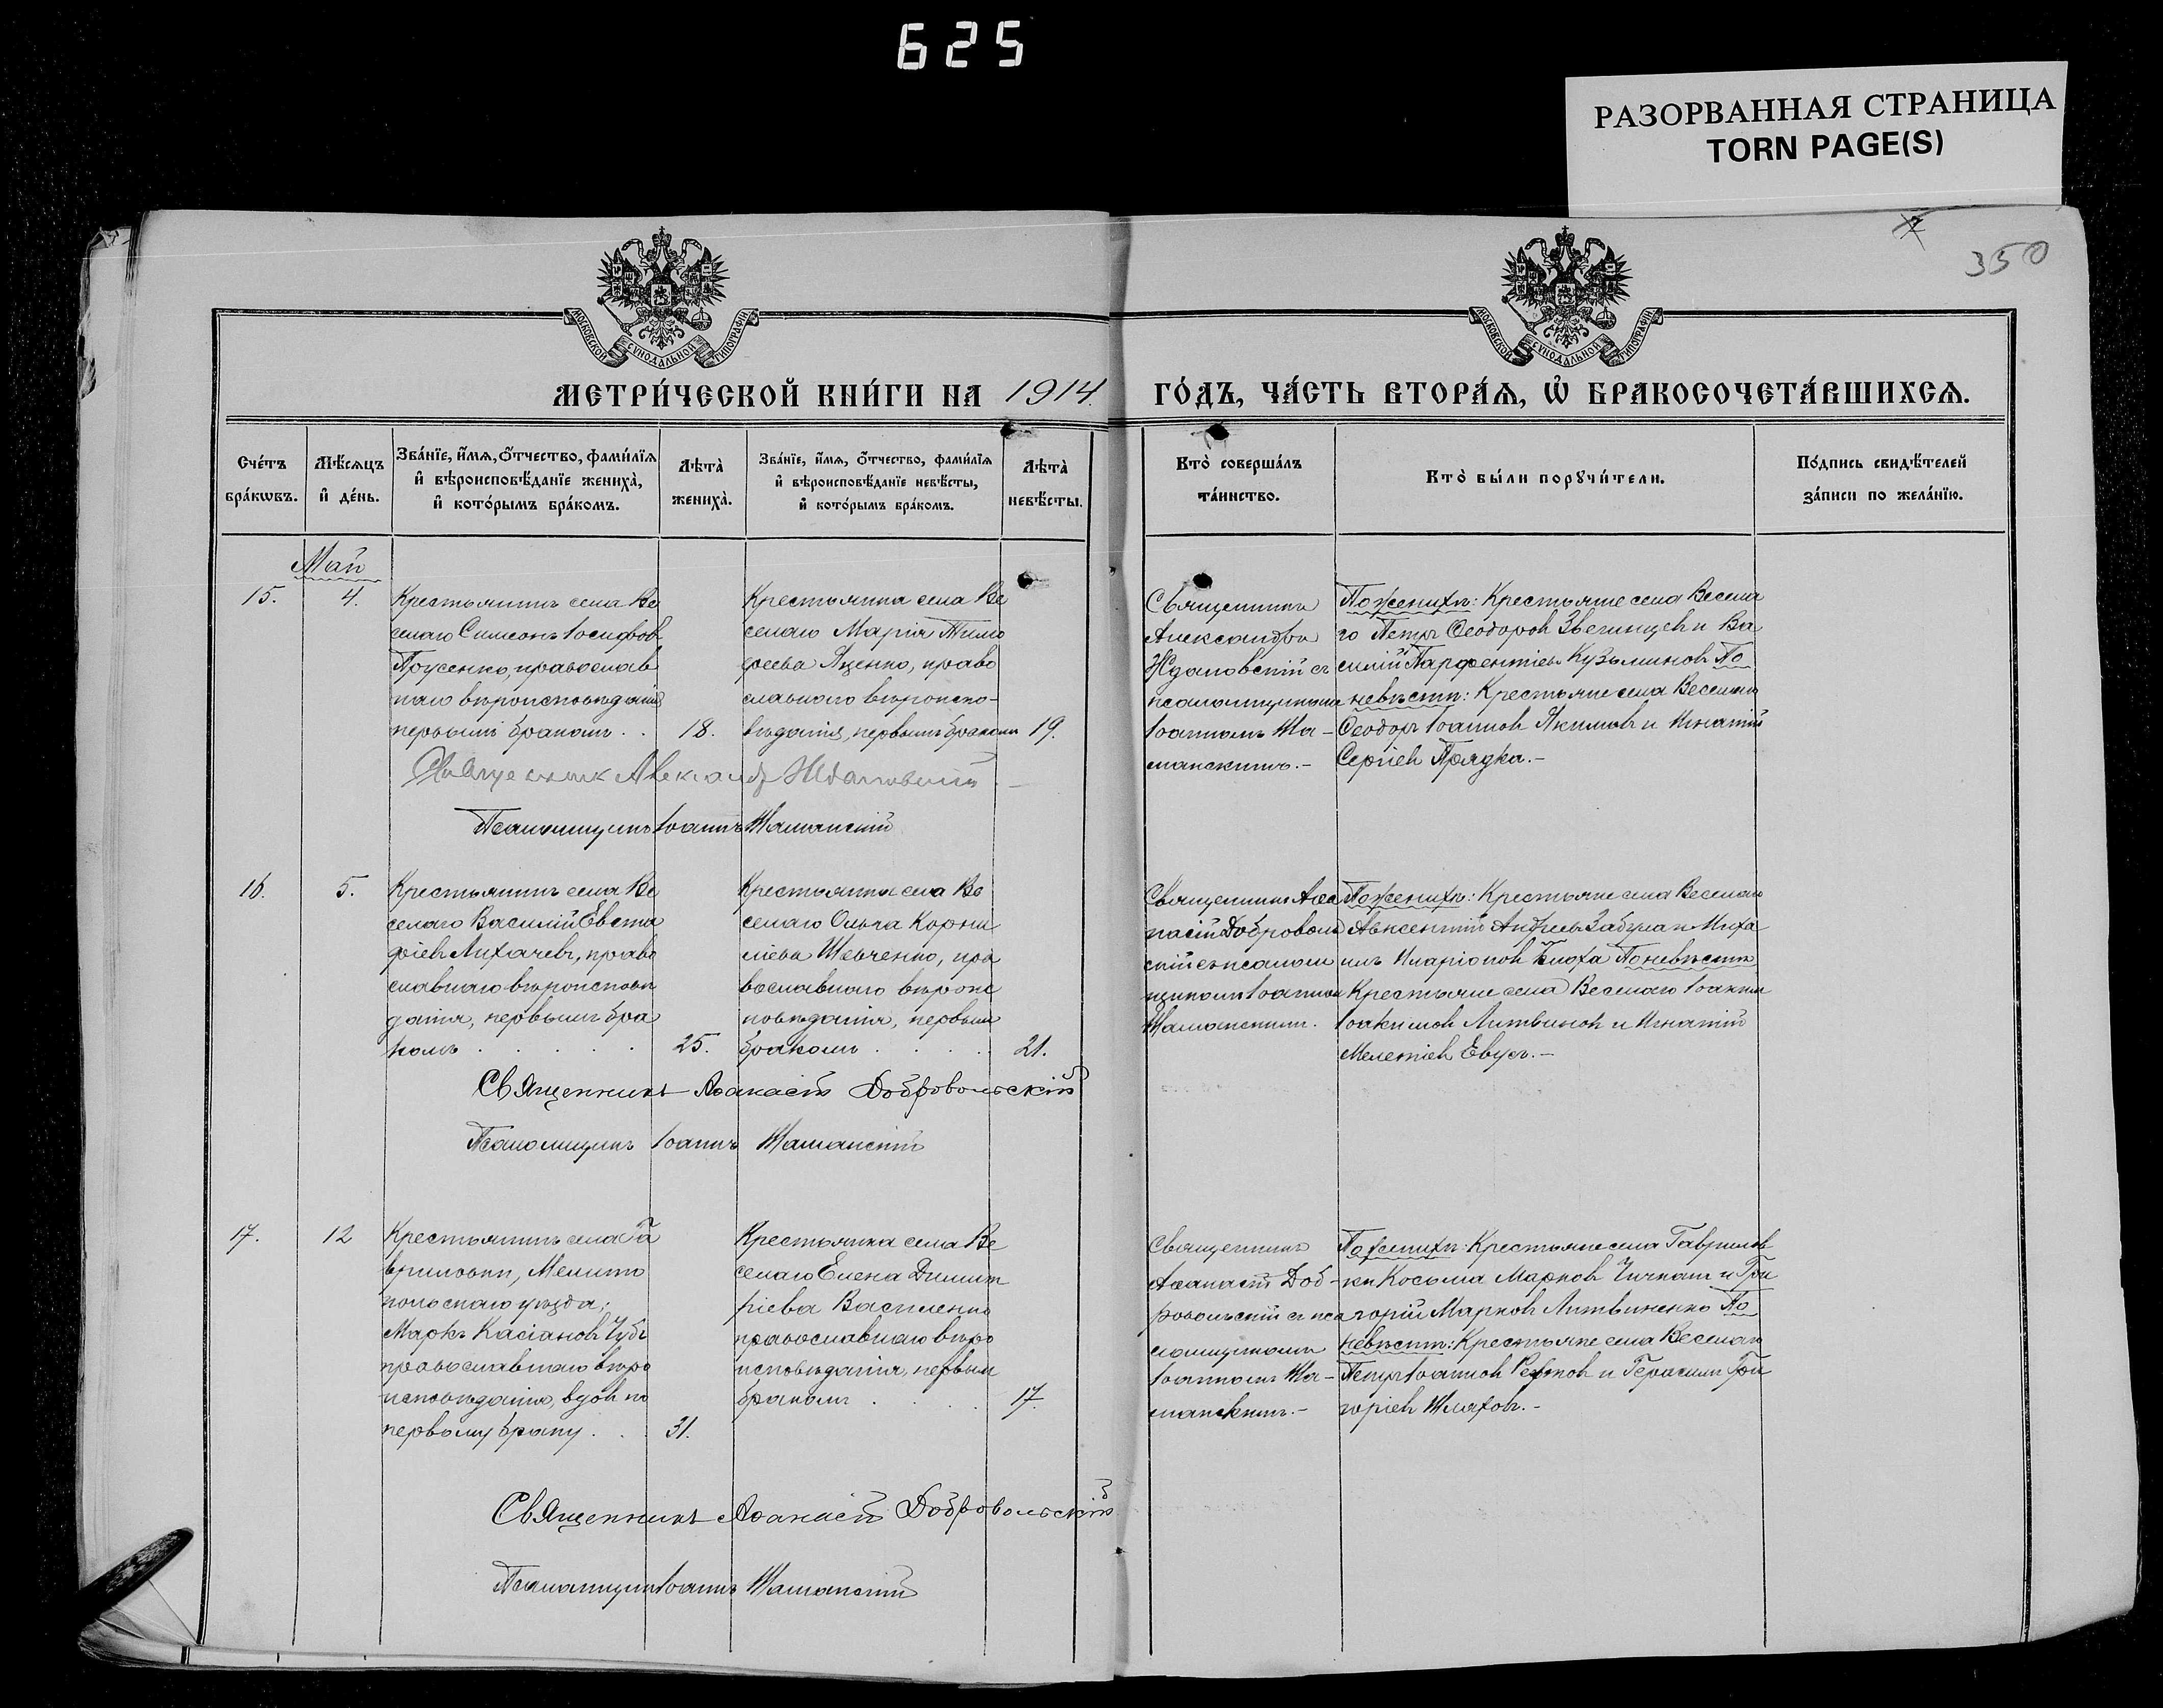 625
РАЗОРВАННАЯ СТРАНИЦА
TORN PAGE(S)
350
МОСКОВСКОЙ СѴНОДАЛЬНОЙ ТИПОГРАФІИ
МОСКОВСКОЙ СѴНОДАЛЬНОЙ ТИПОГРАФІИ
МЕТРИ́ЧЕСКОЙ КНИ́ГИ НА 1914 ГО́ДЪ, ЧА́СТЬ ВТОРА́Ѧ, Ѡ҆ БРАКОСОЧЕТА́ВШИХСѦ.
Сче́тъ
бра́кѡвъ.
Мѣ́сѧцъ
и҆ де́нь.
Зва́нїе, и҆́мѧ, ѻ҆́тчество, фами́лїѧ
и҆ вѣроисповѣ́данїе жениха̀,
и҆ кото́рымъ бра́комъ.
Лѣта̀
жениха̀.
Зва́нїе, и҆́мѧ, ѻ҆́тчество, фами́лїѧ
и҆ вѣроисповѣ́данїе невѣ́сты,
и҆ кото́рымъ бра́комъ.
Лѣта̀
невѣ́сты.
Кто̀ соверша́лъ
та́инство.
Кто̀ бы́ли порꙋчи́тели.
По́дпись свидѣ́телей
за́писи по жела́нїю.
Май
15.
4.
Крестьянинъ села Ве
селаго Симеонъ Іосифовъ
Прусенко, православ
наго вѣроисповѣданія
первымъ бракомъ . .
18.
Крестьянка села Ве
селаго Марія Тимо
феева Яценко, право
славнаго вѣроиспо-
вѣданія, первымъ бракомъ
19.
Священникъ
Александръ
Ждановскій съ
псаломщикомъ
Іоанномъ Ша-
манскимъ.-
По женихѣ: Крестьяне села Весела
го Петръ Ѳеодоровъ Звегинцевъ и Ва
силій Парфентіевъ Кузьминовъ По
невѣстѣ: Крестьяне села Веселаго
Ѳеодоръ Іоанновъ Якимовъ и Игнатій
Сергіевъ Прядка.-
Священник Александр Ждановскій
Псаломщикъ Іоаннъ Шаманскій
16.
5.
Крестьянинъ села Ве
селаго Василій Евста
фіевъ Лихачевъ, право
славнаго вѣроисповѣ
данія, первымъ бра
комъ . . . . .
25.
Крестьянка села Ве
селаго Ольга Корни
ліева Шевченко, пра
вославнаго вѣроис
повѣданія, первымъ
бракомъ . . . .
21.
Священникъ Аѳа
насій Доброволь
скій съ псалом
щикомъ Іоанномъ
Шаманскимъ.
По женихѣ: Крестьяне села Веселаго
Авксентій Андреевъ Забуга и Миха
илъ Иларіоновъ Блоха По невѣстѣ
Крестьяне села Веселаго Іоакимъ
Іоакимовъ Литвиновъ и Игнатій
Мелетіевъ Евусъ.-
Священникъ Аѳанасій Добровольскій
Псаломщикъ Іоаннъ Шаманскій
17.
12
Крестьянинъ села Га
вриловки, Мелито
польскаго уѣзда;
Маркъ Касіановъ Чубъ
православнаго вѣро
исповѣданія, вдовъ по
первому браку . . .
31.
Крестьянка села Ве
селаго Елена Димит
ріева Василенко
православнаго вѣро
исповѣданія, первымъ
бракомъ . . . .
17.
Священникъ
Аѳанасій Доб-
ровольскій съ пса
ломщикомъ
Іоанномъ Ша-
манскимъ.-
По женихѣ: Крестьяне села Гаврилов
ки Косьма Марковъ Чичкань и Гри
горій Марковъ Литвиненко По
невѣстѣ: Крестьяне села Веселаго
Петръ Іоанновъ и Герасимъ Гри
горіевъ Шляховъ.-
Священникъ Аѳанасій Добровольскій
Псаломщикъ Іоаннъ Шаманскій